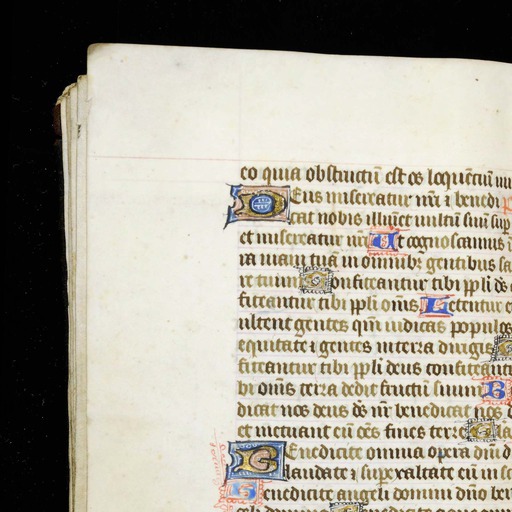 eo quia obstructū est os loquentiū
Deus misereatur nr̄i ⁊ benedi
cat nobis illumēt uultū suū sup
et misereatur nr̄i Ut cognoscamus
ra uiam tuā in omnibꝫ gentibus sa
re tuum Confiteantur tibi pp̄li ds̄
fiteantur tibi pp̄li om̄s Letentur e
ultent gentes qm̄ iudicas populos
equitate ⁊ gentes in terra dirigis
fiteantur tibi pp̄li deus confiteant
bi om̄s terra dedit fructū suum B
dicat nos deus ds̄ nr̄ benedicat nos
et metuant eū oēs fines terre
Benedicite omnia opera dn̄i d
laudate ⁊ supexaltate eū in sc
Benedicite angeli domini dn̄o be
celi domino